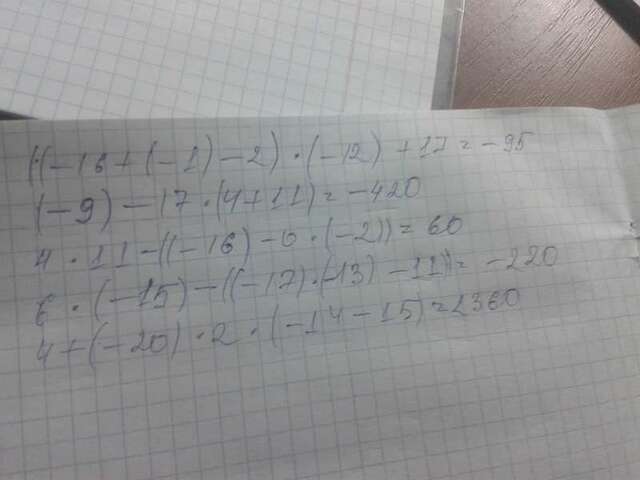 ((-16+(-1)-2)·(-12)+17=-95
(-9)-17·(4+11)=-420
4·11-((-16)-0·(-2))=60
6·(-15)-((-17)·(-13)-11)=-220
4+(-20)·2·(-14-15)=2360